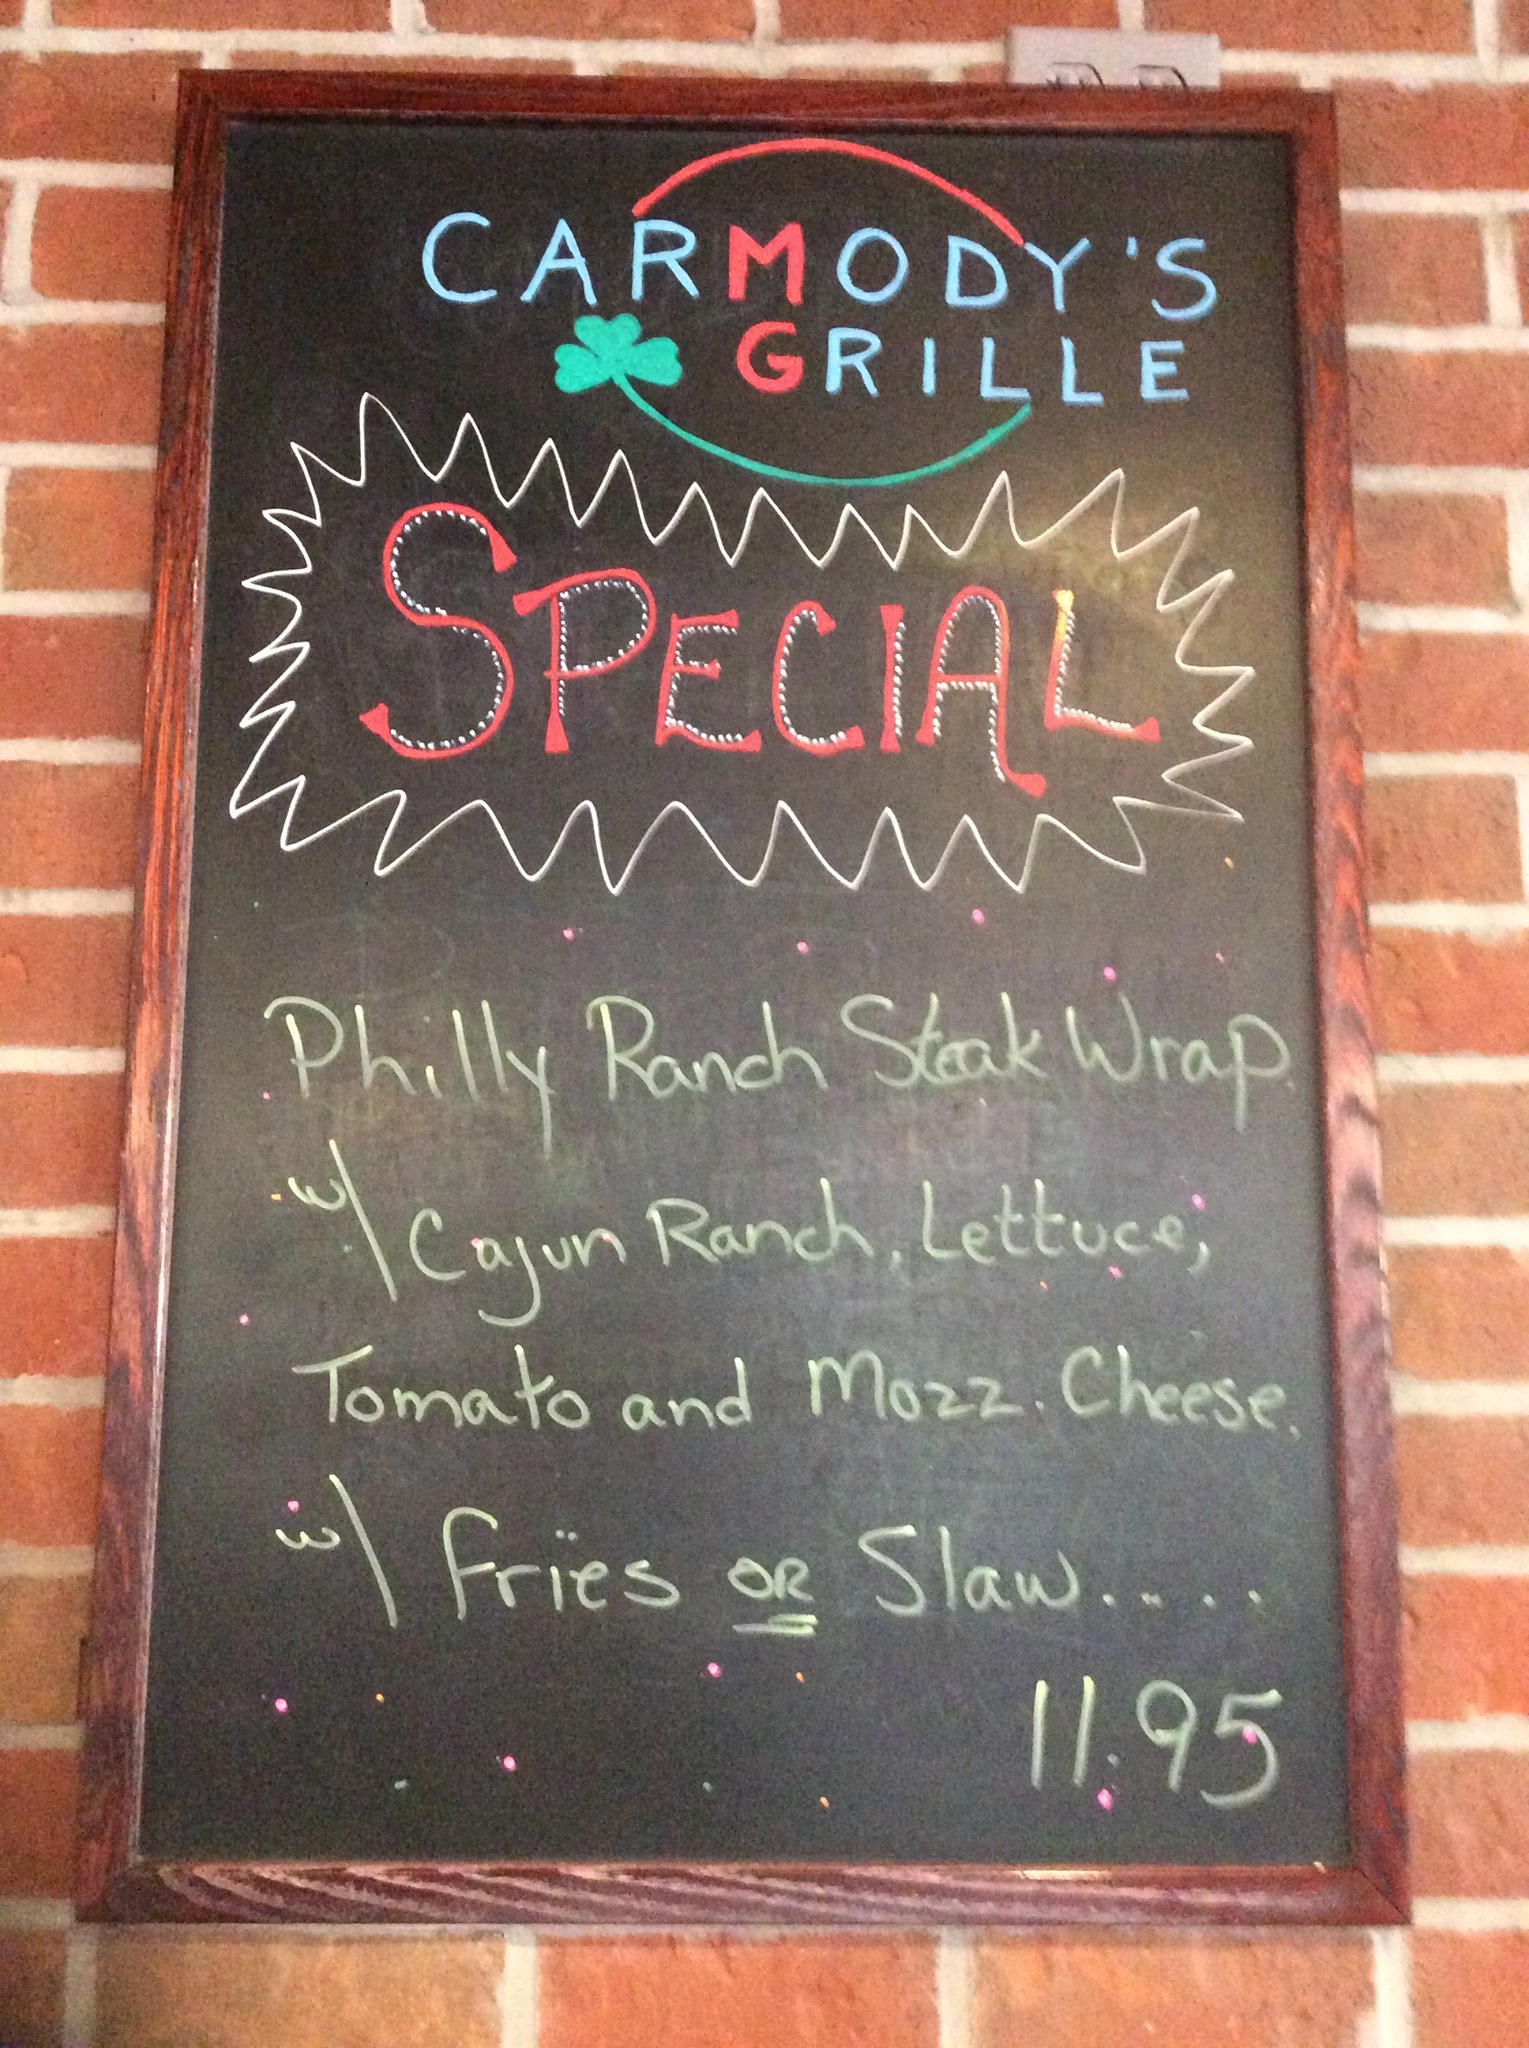 CARMODY'S
GRILLE
SPECIAL
Philly Ranch Steak Wrap
w/ Cajun Ranch, Lettuce,
Tomato and Mozz. Cheese.
w/ Fries OR Slaw.....
11.95